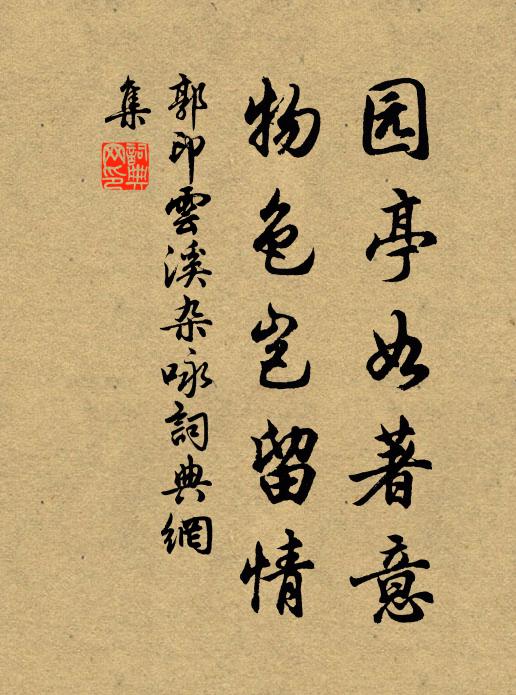 园亭如著意
物色岂留情
郭印雲溪杂咏詞典網
集
詞典
网印